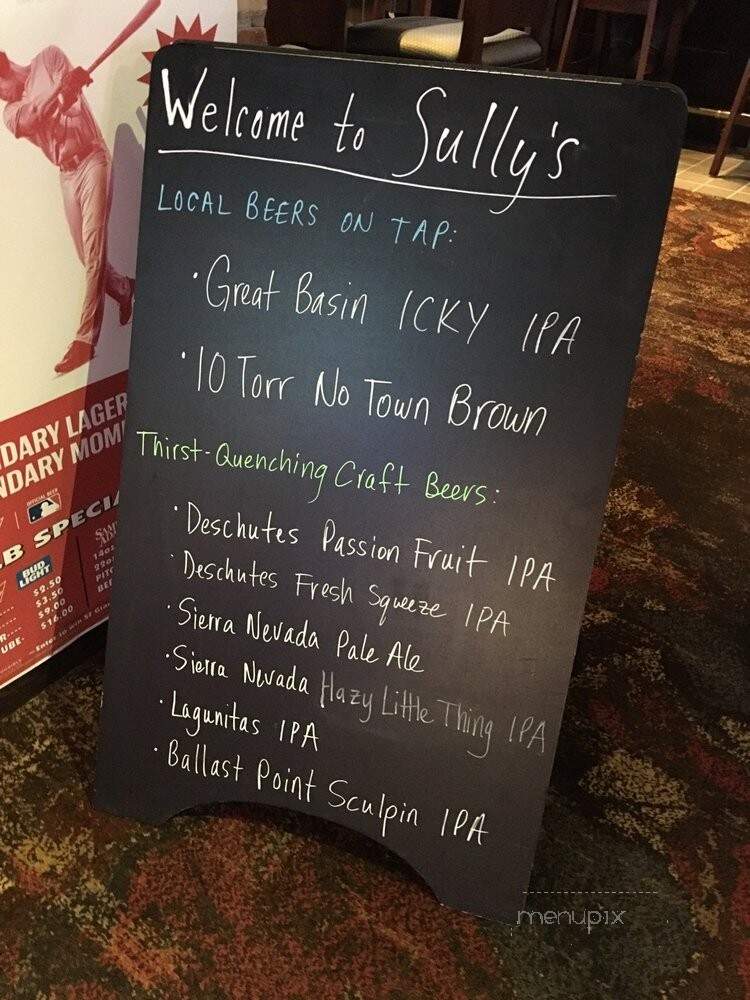 Welcome to Sully's
LOCAL BEERS ON TAP:
·Great Basin ICKY IPA
·10 Torr No Town Brown
Thirst-Quenching Craft Beers:
·Deschutes Passion Fruit IPA
·Deschutes Fresh Squeeze IPA
·Sierra Nevada Pale Ale
·Sierra Nevada Hazy Little Thing IPA
·Lagunitas IPA
·Ballast Point Sculpin IPA
DARY LAGER
NDARY MOM
B SPECIA
BUD
LIGHT
$2.50
$3.50
$9.00
$16.00
UBE
menupix